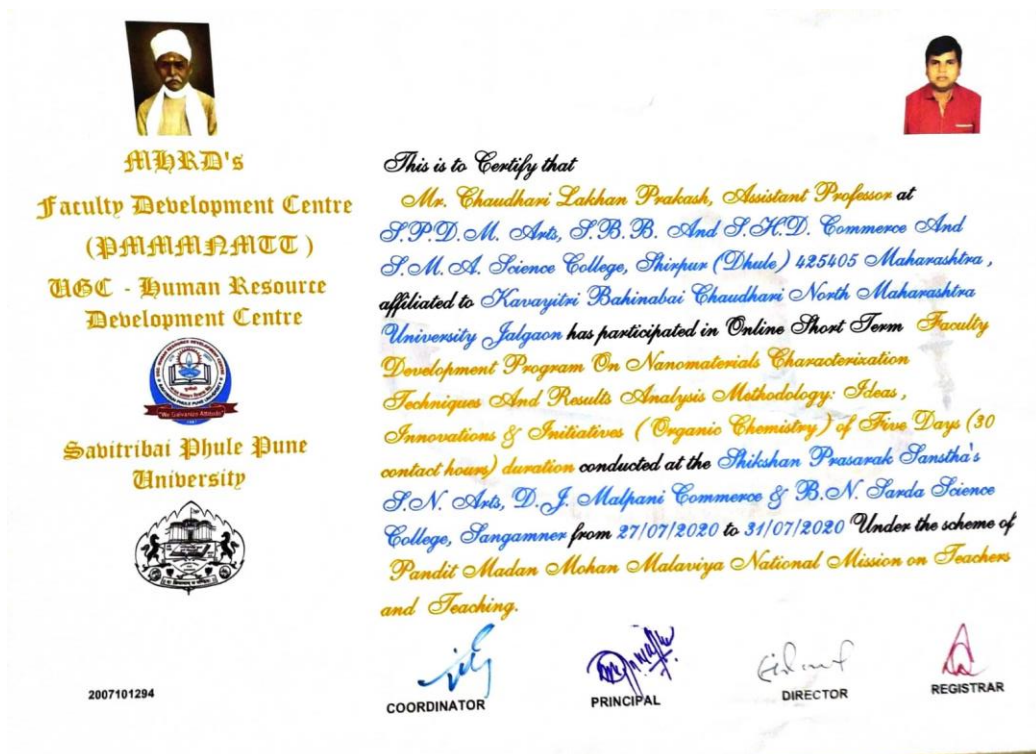 MHRD's
Faculty Development Centre
(PMMMNMTT )
UGC - Human Resource
Development Centre
Savitribai Phule Pune
University
2007101294
This is to Certify that
Mr. Chaudhari Lakhan Prakash, Assistant Professor at
S.P.D.M. Arts, S.B.B. And S.H.D. Commerce And
S.M.A. Science College, Shirpur (Dhule) 425405 Maharashtra ,
affiliated to Kavayitri Bahinabai Chaudhari North Maharashtra
University Jalgaon has participated in Online Short Term Faculty
Development Program On Nanomaterials Characterization
Techniques And Results Analysis Methodology: Ideas ,
Innovations & Initiatives ( Organic Chemistry) of Five Days (30
contact hours) duration conducted at the Shikshan Prasarak Sanstha's
S.N. Arts, D.J. Malpani Commerce & B.N. Sarda Science
College, Sangamner from 27/07/2020 to 31/07/2020 Under the scheme of
Pandit Madan Mohan Malaviya National Mission on Teachers
and Teaching.
COORDINATOR
PRINCIPAL
DIRECTOR
REGISTRAR